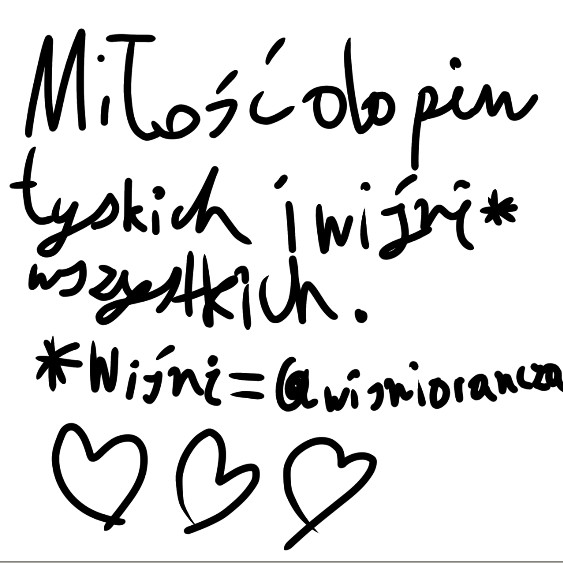 Miłość do piw
tyskich i wiśni*
wszystkich.
*Wiśni=@wisniorancza